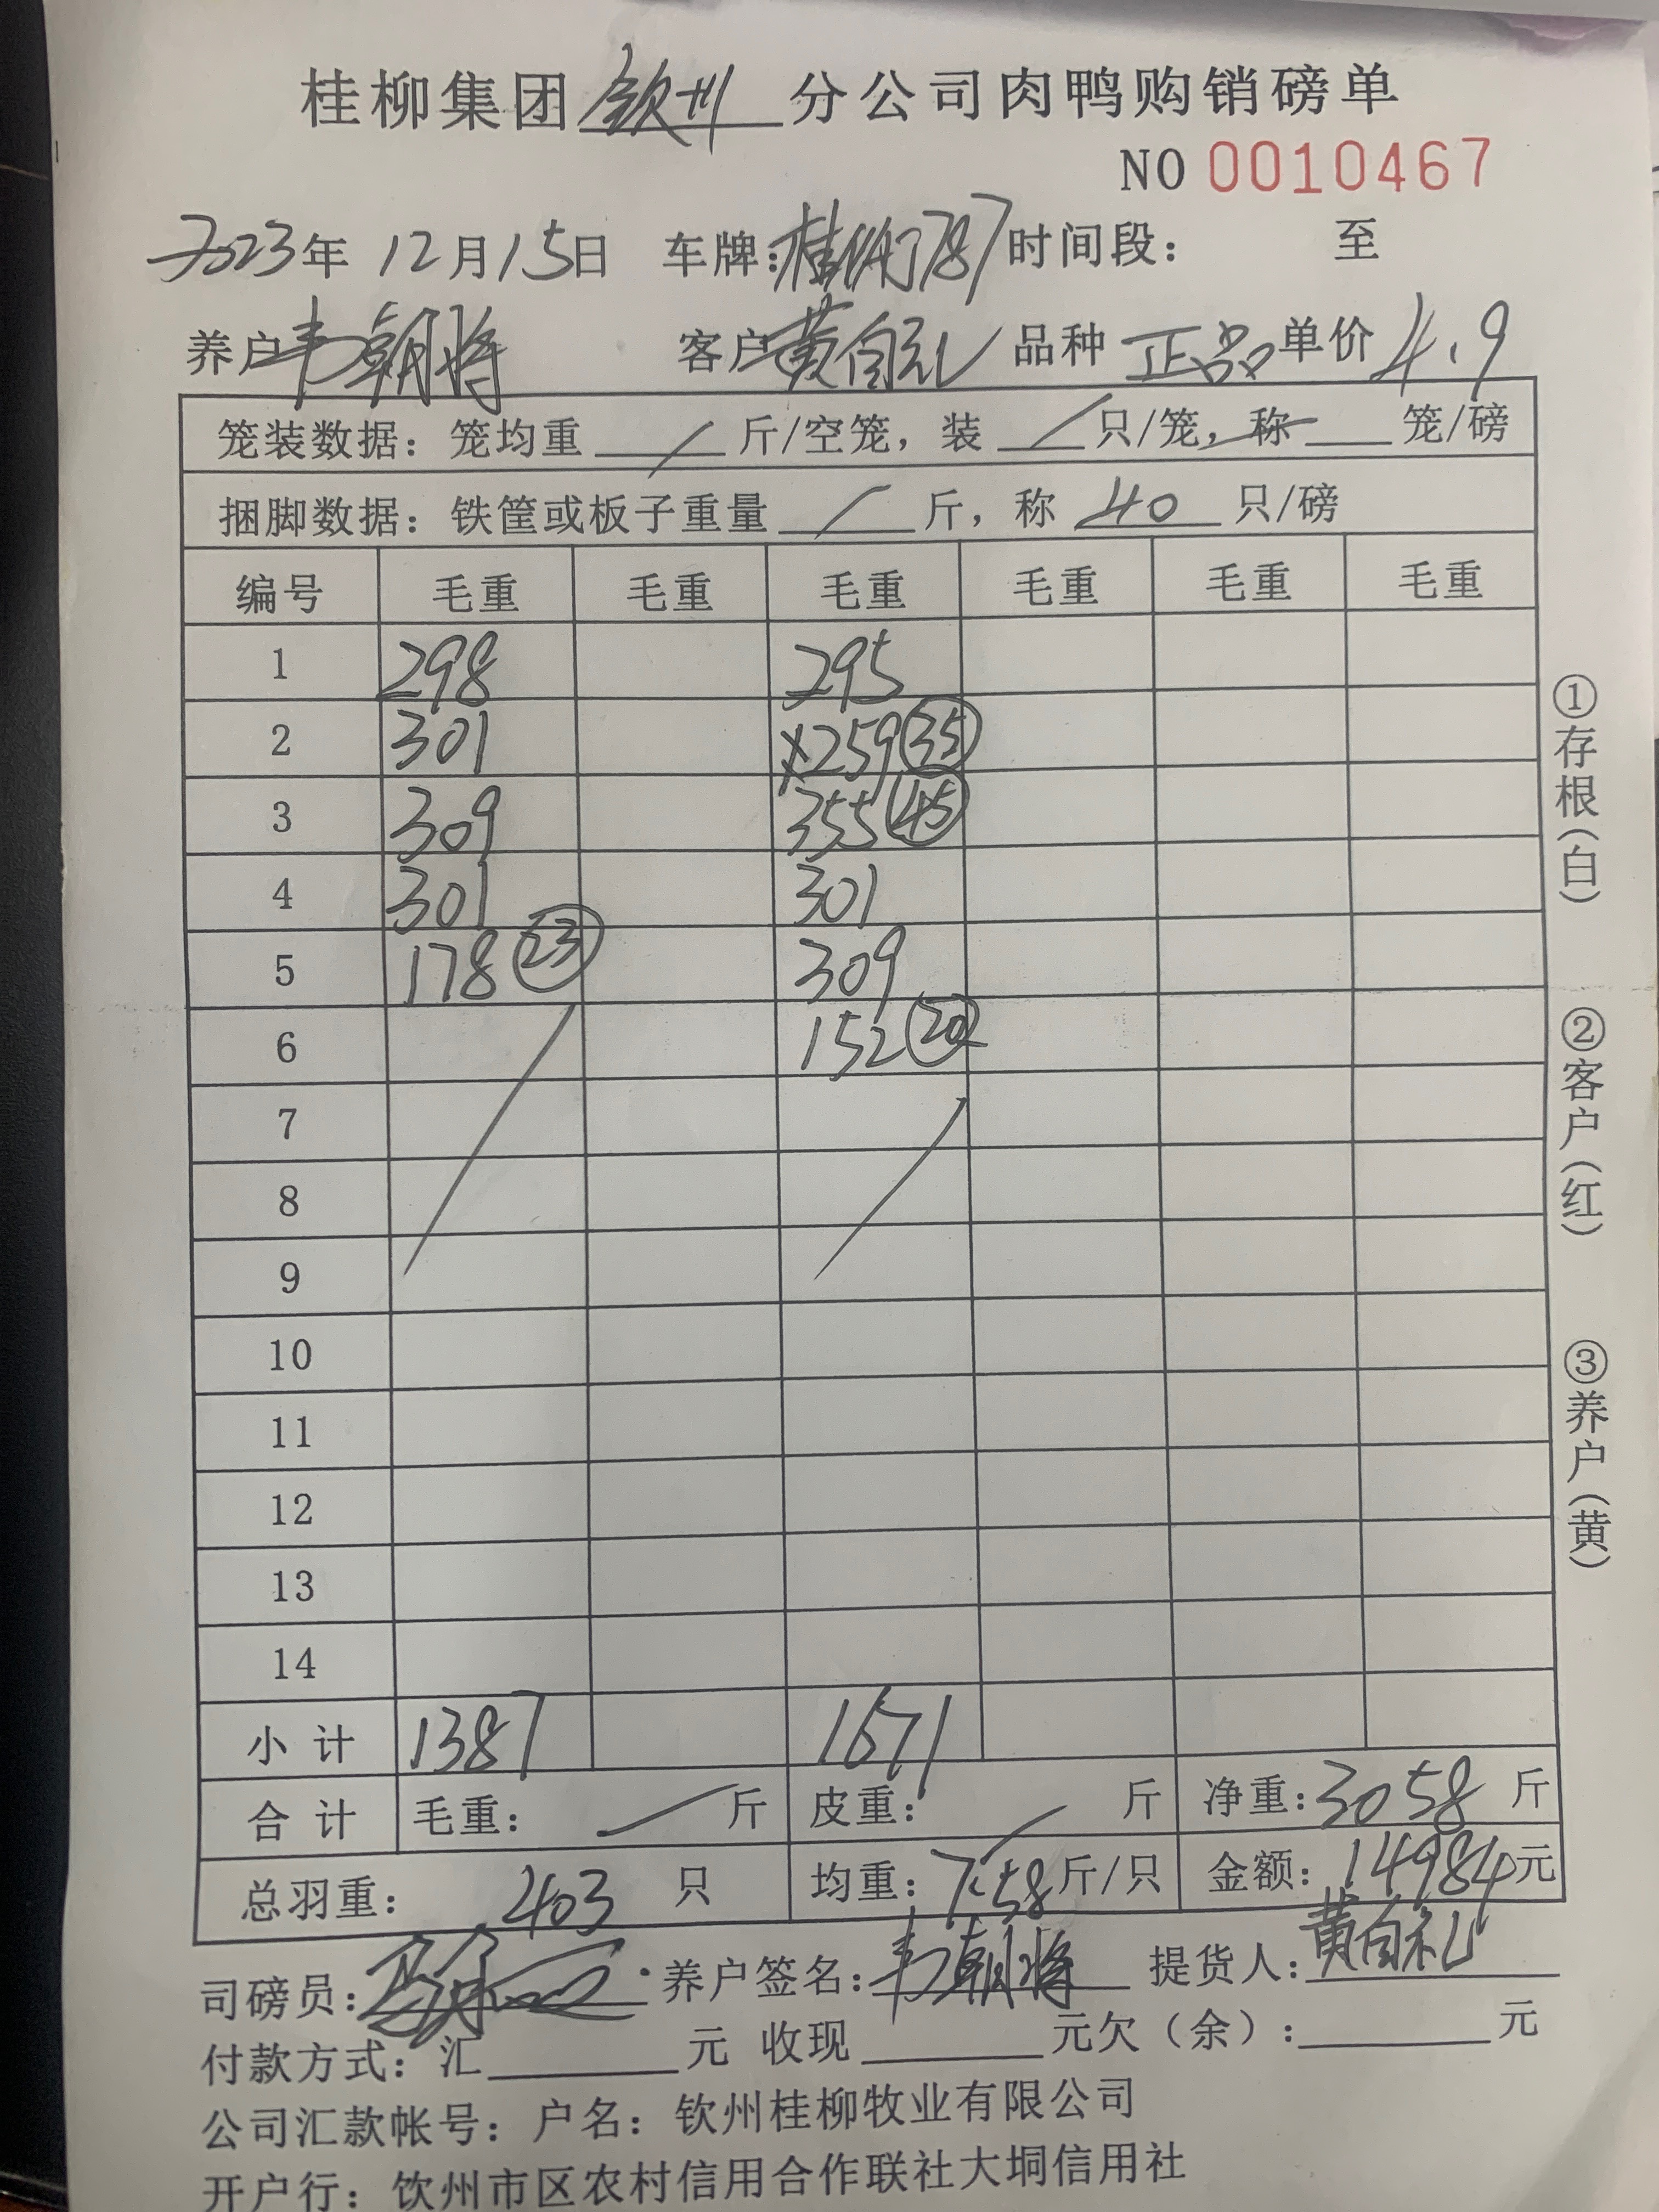 桂柳集团钦州分公司肉鸭购销磅单
NO 0010467
2023年 12月15日 车牌:桂 787 时间段: 至
养户 韦朝将 客户 黄自礼 品种 正品 单价 4.9
笼装数据: 笼均重 / 斤/空笼, 装 / 只/笼, 称 笼/磅
捆脚数据: 铁筐或板子重量 / 斤, 称 40 只/磅
编号 毛重 毛重 毛重 毛重 毛重 毛重
1 298 295
2 301 x259 (35)
3 309 355 (45)
4 301 301
5 178 (23) 309
6 152 (20)
7
8
9
10
11
12
13
14
小计 1387 1671
合计 毛重: / 斤 皮重: / 斤 净重: 3058 斤
总羽重: 403 只 均重: 7.58 斤/只 金额: 14984 元
司磅员: 养户签名: 韦朝将 提货人: 黄自礼
付款方式: 汇 元 收现 元欠(余): 元
公司汇款帐号: 户名: 钦州桂柳牧业有限公司
开户行: 钦州市区农村信用合作联社大垌信用社
①存根(白)
②客户(红)
③养户(黄)